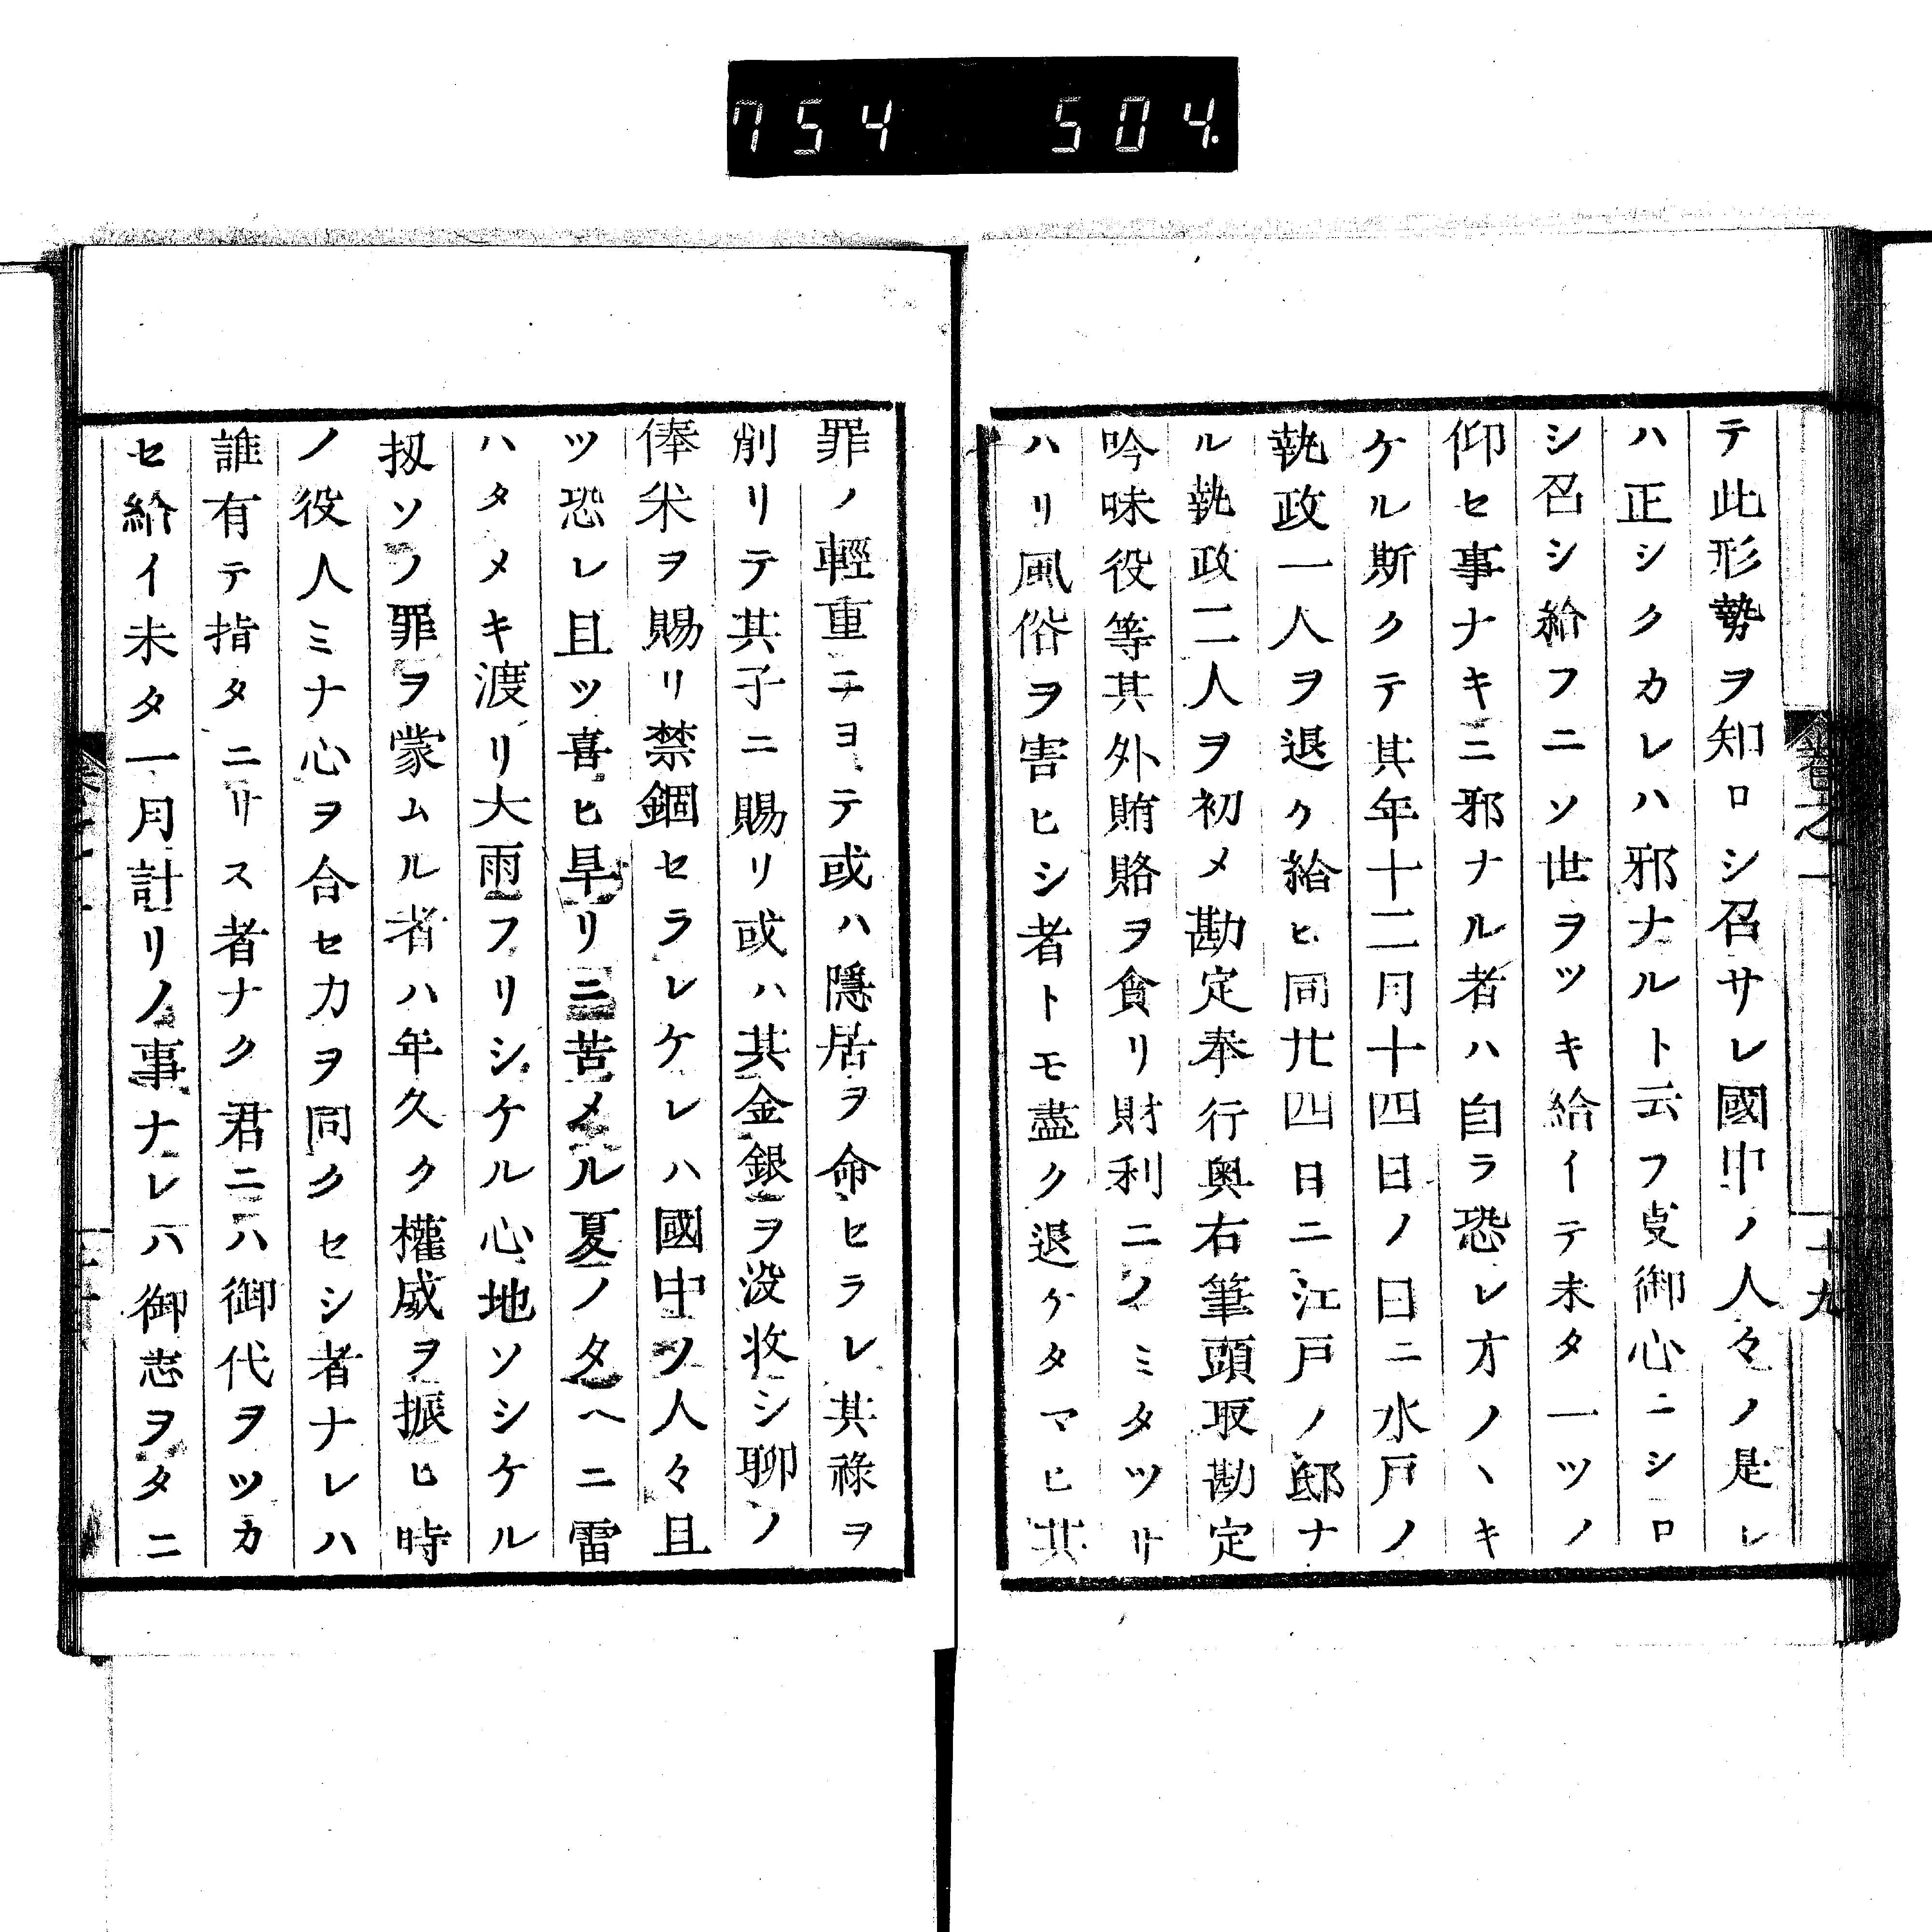 754 504.
卷之一
十九
テ此形勢ヲ知ロシ召サレ國中ノ人々ノ是レ
ハ正シクカレハ邪ナルト云フ㕝御心ニシロ
シ召シ給フニソ世ヲツキ給イテ未タ一ツノ
仰セ事ナキニ邪ナル者ハ自ラ恐レオノヽキ
ケル斯クテ其年十二月十四日ノ日ニ水戸ノ
執政一人ヲ退ク給ヒ同廿四日ニ江戸ノ邸ナ
ル執政二人ヲ初メ勘定奉行奥右筆頭取勘定
吟味役等其外賄賂ヲ貪リ財利ニノミタツサ
ハリ風俗ヲ害ヒシ者トモ盡ク退ケタマヒ其
罪ノ輕重ニヨテ或ハ隱居ヲ命セラレ其祿ヲ
削リテ其子ニ賜リ或ハ其金銀ヲ沒收シ聊ノ
俸米ヲ賜リ禁錮セラレケレハ國中ソ人々且
ツ恐レ且ツ喜ヒ旱リニ苦メル夏ノタヘニ雷
ハタメキ渡リ大雨フリシケル心地ソシケル
扨ソノ罪ヲ蒙ムル者ハ年久ク權威ヲ振ヒ時
ノ役人ミナ心ヲ合セ力ヲ同クセシ者ナレハ
誰有テ指タニサス者ナク君ニハ御代ヲツカ
セ給イ未タ一月計リノ事ナレハ御志ヲタニ